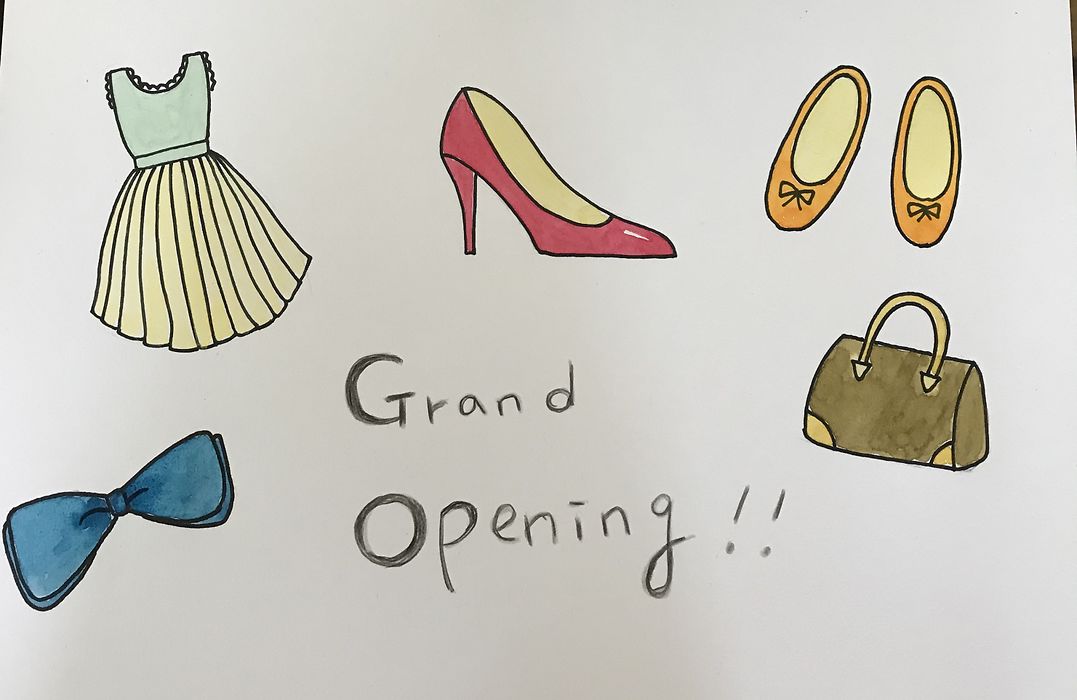 Grand
Opening!!